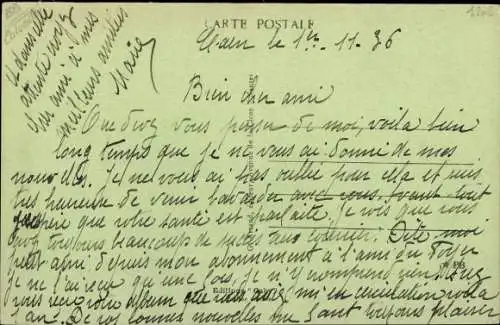 CARTE POSTALE
Caen le 1er - 11 - 36
Bien cher ami
Que devez vous penser de moi, voilà bien
long temps que je ne vous ai donné de mes
nouvelles. Je ne vous ai pas oublié pour cela et suis
très heureuse de venir bavarder avec vous. Avant tout
j'espère que votre santé est parfaite. Je vois que vous
avez toujours beaucoup de succès aux concours. Dite moi
petit ami depuis mon abonnement à l'ami du
je ne l'ai reçu que une fois. Je n'y comprend rien.
vous reçu votre album que vous avez mi en circulation voilà
1 an. De vos bonnes nouvelles me font toujours plaisir
et dans cette
attente
cher ami à mes
meilleures amitiés
Marie
Editions